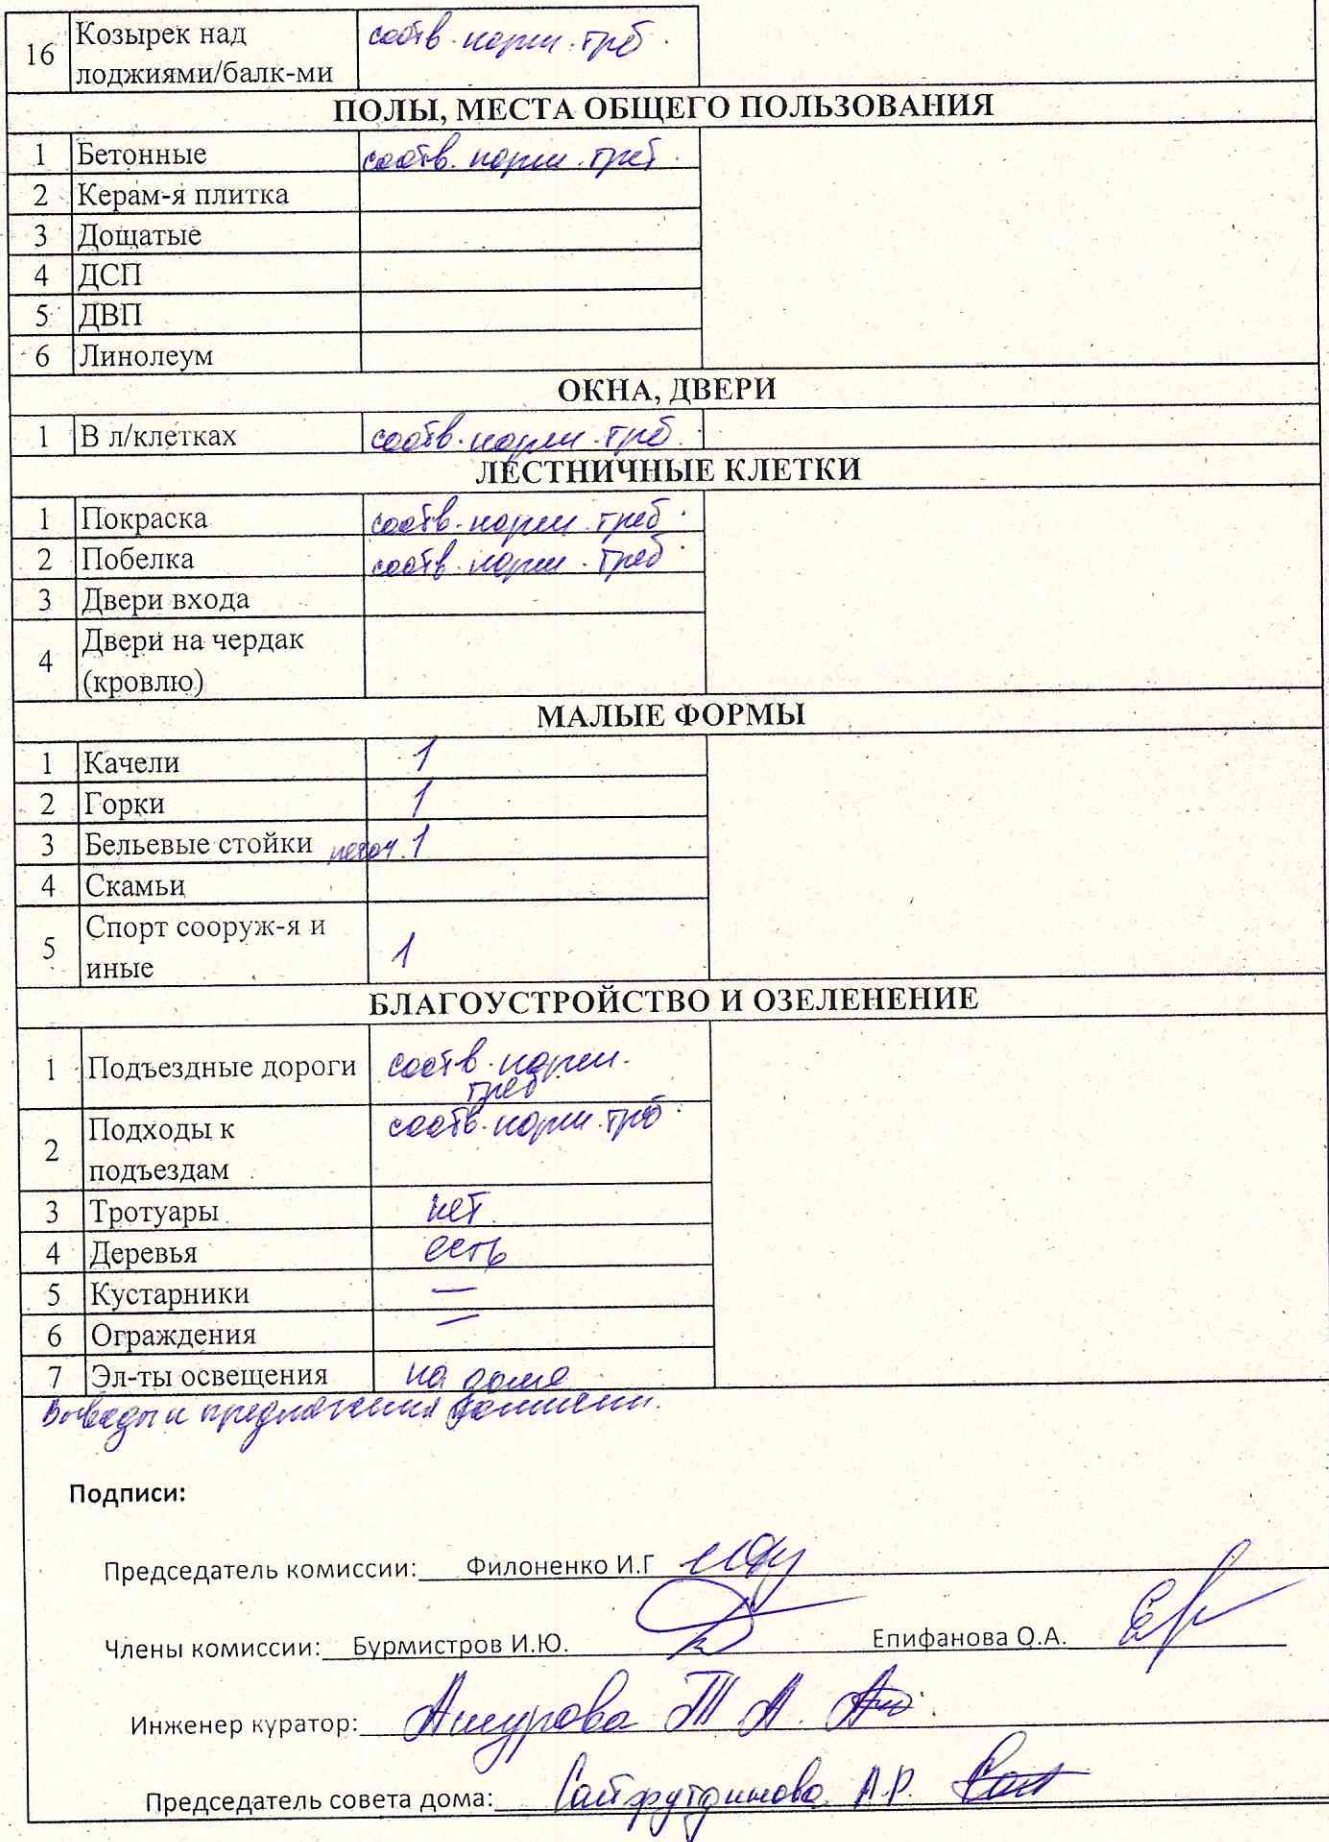 16 Козырек над лоджиями/балк-ми соотв. норм. треб.
ПОЛЫ, МЕСТА ОБЩЕГО ПОЛЬЗОВАНИЯ
1 Бетонные соотв. норм. треб.
2 Керам-я плитка
3 Дощатые
4 ДСП
5 ДВП
6 Линолеум
ОКНА, ДВЕРИ
1 В л/клетках соотв. норм. треб.
ЛЕСТНИЧНЫЕ КЛЕТКИ
1 Покраска соотв. норм. треб.
2 Побелка соотв. норм. треб.
3 Двери входа
4 Двери на чердак (кровлю)
МАЛЫЕ ФОРМЫ
1 Качели 1
2 Горки 1
3 Бельевые стойки 1
4 Скамьи
5 Спорт сооруж-я и иные 1
БЛАГОУСТРОЙСТВО И ОЗЕЛЕНЕНИЕ
1 Подъездные дороги соотв. норм. треб
2 Подходы к подъездам соотв. норм. треб.
3 Тротуары нет
4 Деревья есть
5 Кустарники —
6 Ограждения —
7 Эл-ты освещения на доме
Выводы и предложения комиссии.
Подписи:
Председатель комиссии: Филоненко И.Г
Члены комиссии: Бурмистров И.Ю. Епифанова О.А.
Инженер куратор: Ашурова Т А.
Председатель совета дома: Сайфутдинова А.Р.